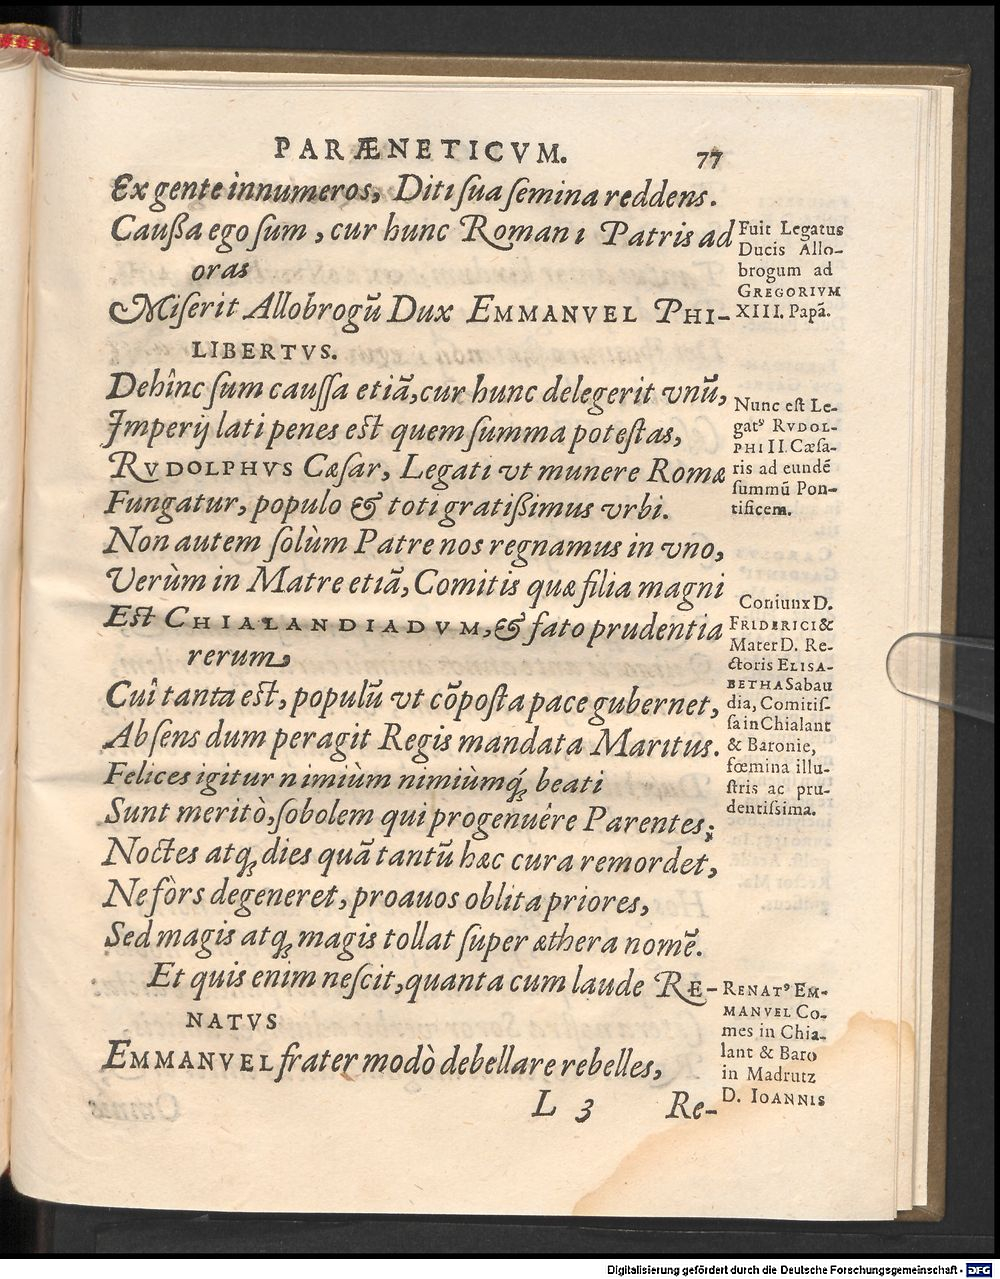 PARÆNETICVM. 77
Ex gente innumeros, Diti sua semina reddens.
Caußa ego sum, cur hunc Romani Patris ad
oras
Miserit Allobrogũ Dux EMMANVEL PHI-
LIBERTVS.
Dehînc sum caussa etiã, cur hunc delegerit vnũ,
Imperij lati penes est quem summa potestas,
RVDOLPHVS Cæsar, Legati vt munere Romæ
Fungatur, populo & toti gratißimus vrbi.
Non autem solùm Patre nos regnamus in vno,
Verùm in Matre etiã, Comitis quæ filia magni
Est CHIALANDIADVM, & fato prudentia
rerum,
Cuî tanta est, populũ vt cõposta pace gubernet,
Absens dum peragit Regis mandata Maritus.
Felices igitur nimiùm nimiùmq́; beati
Sunt meritò, sobolem qui progenuêre Parentes;
Noctes atq; dies quã tantũ hæc cura remordet,
Ne fòrs degeneret, proauos oblita priores,
Sed magis atq; magis tollat super æthera nomẽ.
Et quis enim nescit, quanta cum laude RE-
NATVS
EMMANVEL frater modò debellare rebelles,
L 3 Re-
Fuit Legatus
Ducis Allo-
brogum ad
GREGORIVM
XIII. Papã.
Nunc est Le-
gatꝰ RVDOL-
PHI II. Cæsa-
ris ad eundẽ
summũ Pon-
tificem.
Coniunx D.
FRIDERICI &
Mater D. Re-
ctoris ELISA-
BETHA Sabau
dia, Comitis-
sa in Chialant
& Baronie,
fœmina illu-
stris ac pru-
dentissima.
RENATꝰ EM-
MANVEL Co-
mes in Chia-
lant & Baro
in Madrutz
D. IOANNIS
Digitalisierung gefördert durch die Deutsche Forschungsgemeinschaft - DFG